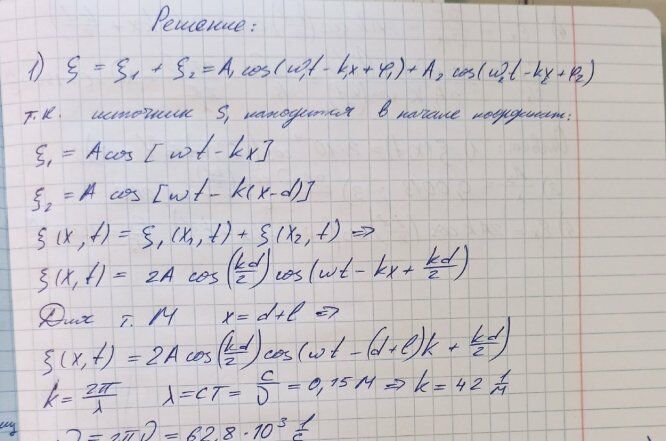 Решение:
1) ξ = ξ₁ + ξ₂ = A₁ cos(ω₁t - k₁x + φ₁) + A₂ cos(ω₂t - k₂x + φ₂)
т.к. источник S₁ находится в начале координат:
ξ₁ = A cos [ωt - kx]
ξ₂ = A cos [ωt - k(x-d)]
ξ(x,t) = ξ₁(x₁,t) + ξ(x₂,t) ⇒
ξ(x,t) = 2A cos(kd/2) cos(ωt - kx + kd/2)
Для т. M x = d+l ⇒
ξ(x,t) = 2A cos(kd/2) cos(ωt - (d+l)k + kd/2)
k = 2π/λ λ = cT = c/ν = 0,15 м ⇒ k = 42 1/м
= 2πν = 62,8 · 10³ 1/с